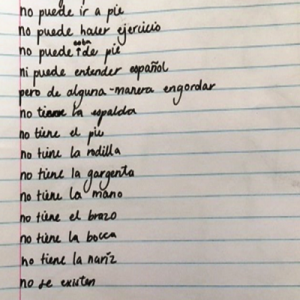 no puede ir a pie
no puede haler ejercicio
no puede esta de pie
ni puede entender español
pero de alguna-manera engordar
no tiene la espalda
no tiene el pie
no tiene la rodilla
no tiene la garganta
no tiene la mano
no tiene el brazo
no tiene la bocca
no tiene la nariz
no se existen